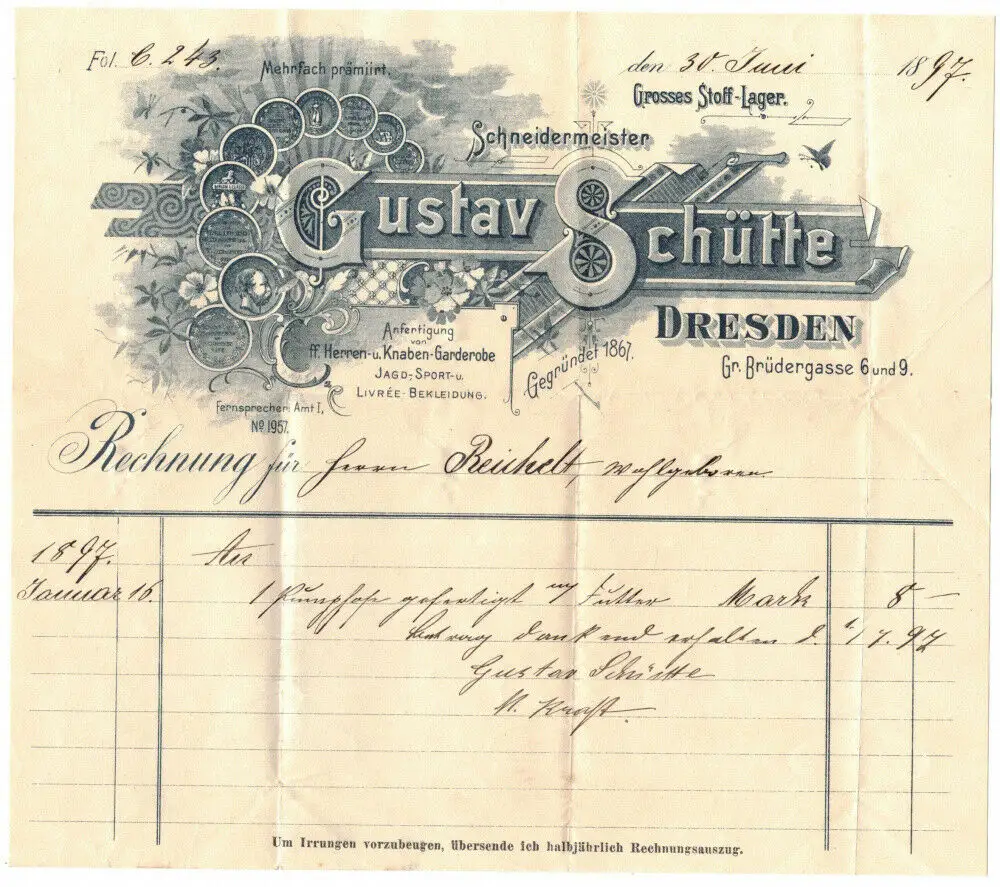 Fol. C. 243.
den 30. Juni 1897.
Mehrfach prämiirt.
Grosses Stoff-Lager.
Schneidermeister
Gustav Schütte
DRESDEN
Gr. Brüdergasse 6 und 9.
Anfertigung
von
ff. Herren- u. Knaben-Garderobe
JAGD-, SPORT- u.
LIVRÉE-BEKLEIDUNG.
Gegründet 1867.
Fernsprecher: Amt I,
No 1957.
Rechnung für Herrn Reichelt, Wohlgeboren
1897. An
Januar 16. 1 Pumphose gefertigt m Futter Mark 8 —
Betrag dankend erhalten d. 1/7. 97
Gustav Schütte
Kraft.
Um Irrungen vorzubeugen, übersende ich halbjährlich Rechnungsauszug.